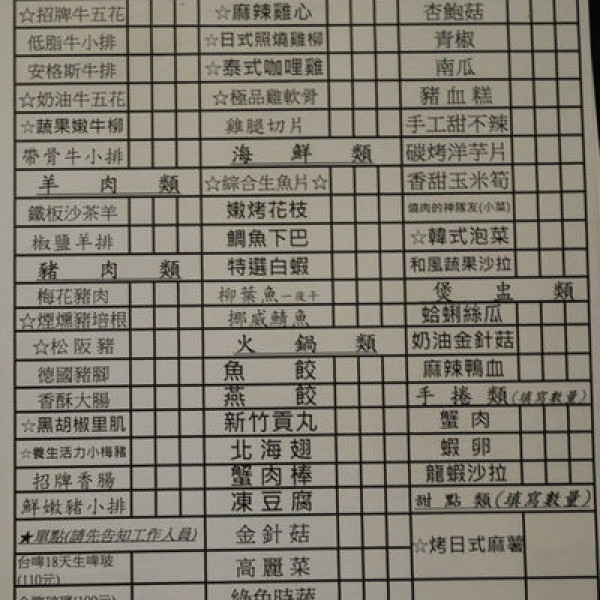 ☆招牌牛五花
低脂牛小排
安格斯牛排
☆奶油牛五花
☆蔬果嫩牛柳
帶骨牛小排
羊肉類
鐵板沙茶羊
椒鹽羊排
豬肉類
梅花豬肉
☆煙燻豬培根
☆松阪豬
德國豬腳
香酥大腸
☆黑胡椒里肌
☆養生活力小梅豬
招牌香腸
鮮嫩豬小排
★單點(請先告知工作人員)
台啤18天生啤玻
(110元)
☆麻辣雞心
☆日式照燒雞柳
☆泰式咖哩雞
☆極品雞軟骨
雞腿切片
海鮮類
☆綜合生魚片☆
嫩烤花枝
鯛魚下巴
特選白蝦
柳葉魚一夜干
挪威鯖魚
火鍋類
魚餃
燕餃
新竹貢丸
北海翅
蟹肉棒
凍豆腐
金針菇
高麗菜
綠色時蔬
杏鮑菇
青椒
南瓜
豬血糕
手工甜不辣
碳烤洋芋片
香甜玉米筍
燒肉的神隊友(小菜)
☆韓式泡菜
和風蔬果沙拉
煲盅類
蛤蜊絲瓜
奶油金針菇
麻辣鴨血
手捲類(填寫數量)
蟹肉
蝦卵
龍蝦沙拉
甜點類(填寫數量)
☆烤日式麻薯